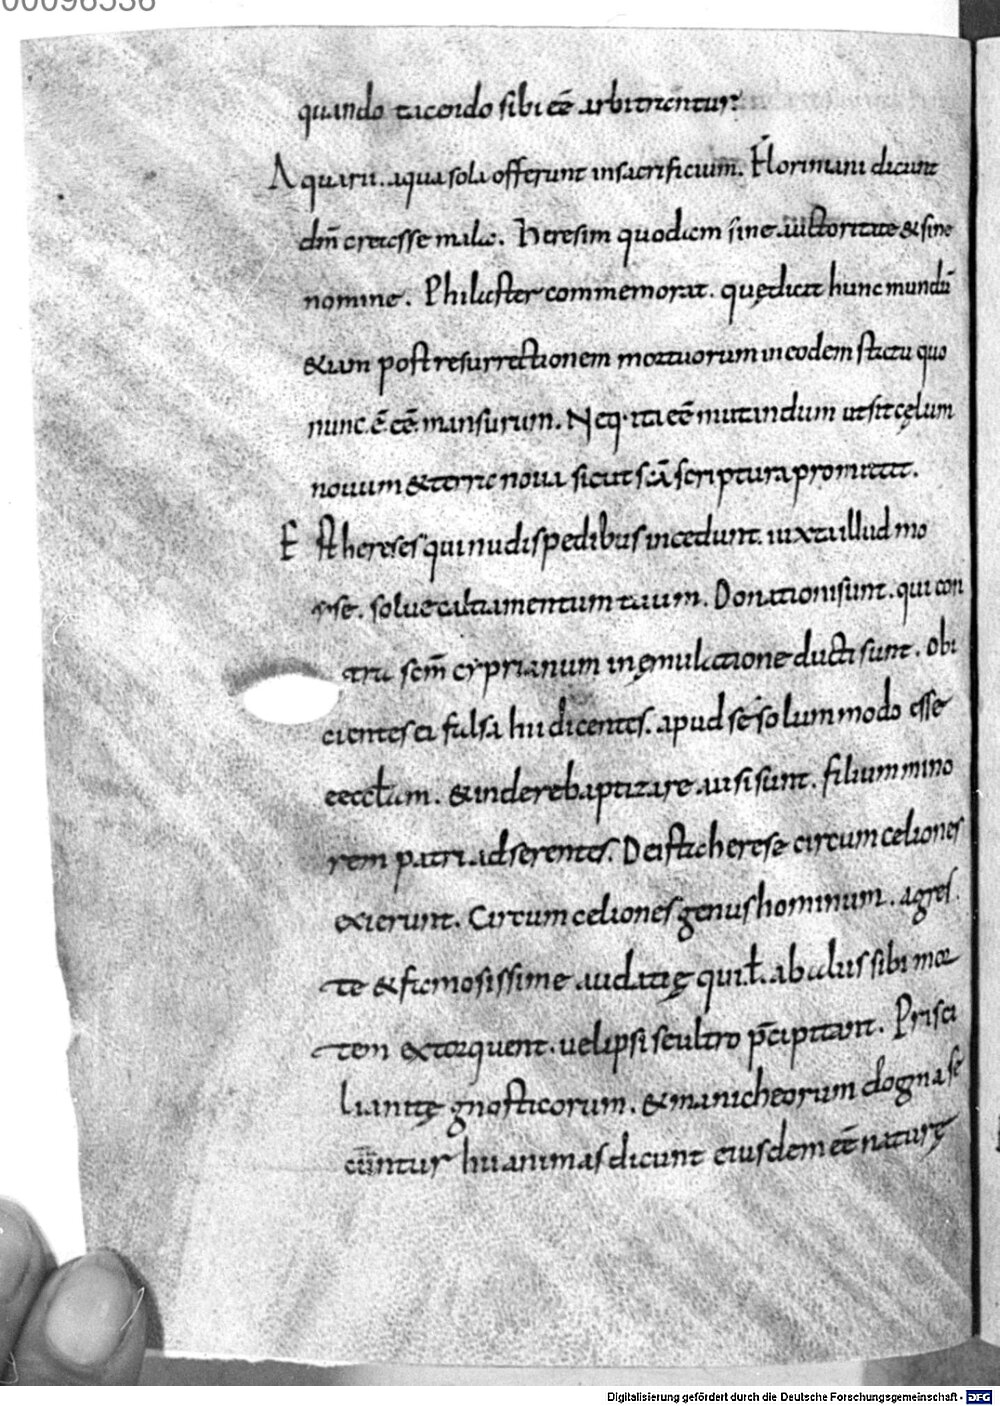 00096536
quando tacendo sibi eē arbitrentur.
Aquarii. aqua sola offerunt in sacrificium. Floriniani dicunt
dm̄ creasse mala. heresim quodam sine auctoritate & sine
nomine. Philaster commemorat. quę dicat hunc mundū
& iam post resurrectionem mortuorum in eodem statu quo
nunc ē eē mansurum. Neq· ita eē mutandum ut sit cęlum
nouum & terra noua sicut scā scriptura promittit.
Est hereses qui nudis pedibus incedunt. iuxta illud mo
yse. solue caltiamentum tuum. Donationi sunt. qui con
tra scm̄ cyprianum in ęmulatione ducti sunt. obi
cientes ei falsa hii dicentes. apud se solummodo esse
eccłam. & inde rebaptizare uisi sunt. filium mino
rem patri adserentes. De ista herese circumceliones
exierunt. Circumceliones genus hominum. agres
te & famosissime audatię qui ł ab aliis sibi mor
tem extorquent. uel ipsi se ultro p̄cipitant. Prisci
lianitę gnosticorum. & manicheorum dogna se
cuntur hii animas dicunt eiusdem eē naturę
Digitalisierung gefördert durch die Deutsche Forschungsgemeinschaft - DFG